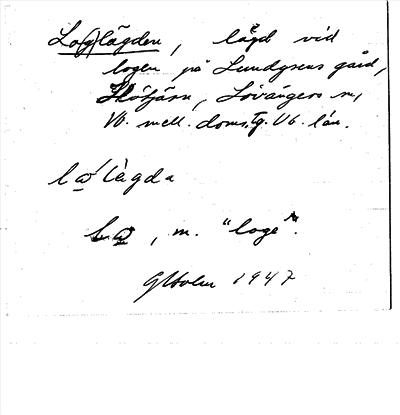 Loglägden, lägd vid
logen på Lundgrens gård,
Slötjärn, Lövångers sn,
Vb. mell. doms. tg. Vb. län.
la lägda
la, m. "loge".
GHolm 1947